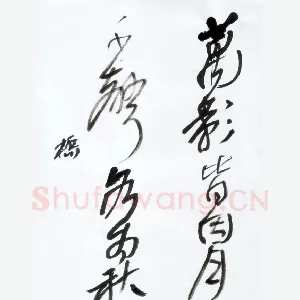 萬影皆因月
千聲各為秋
橋
Shufawang.CN